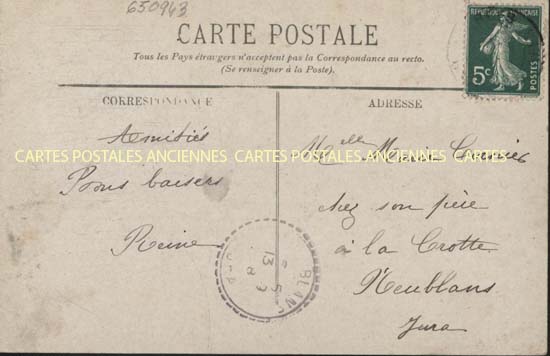 650943
CARTE POSTALE
Tous les Pays étrangers n'acceptent pas la Correspondance au recto.
(Se renseigner à la Poste).
RÉPUBLIQUE FRANÇAISE
5c
POSTES
CORRESPONDANCE
ADRESSE
Amitiés
Bons baisers
Reine
Melle Marie
chez son père
à la Crotte
Neublans
Jura
CARTES POSTALES ANCIENNES CARTES POSTALES ANCIENNES CARTES POSTALES ANCIENNES
BLANS
13